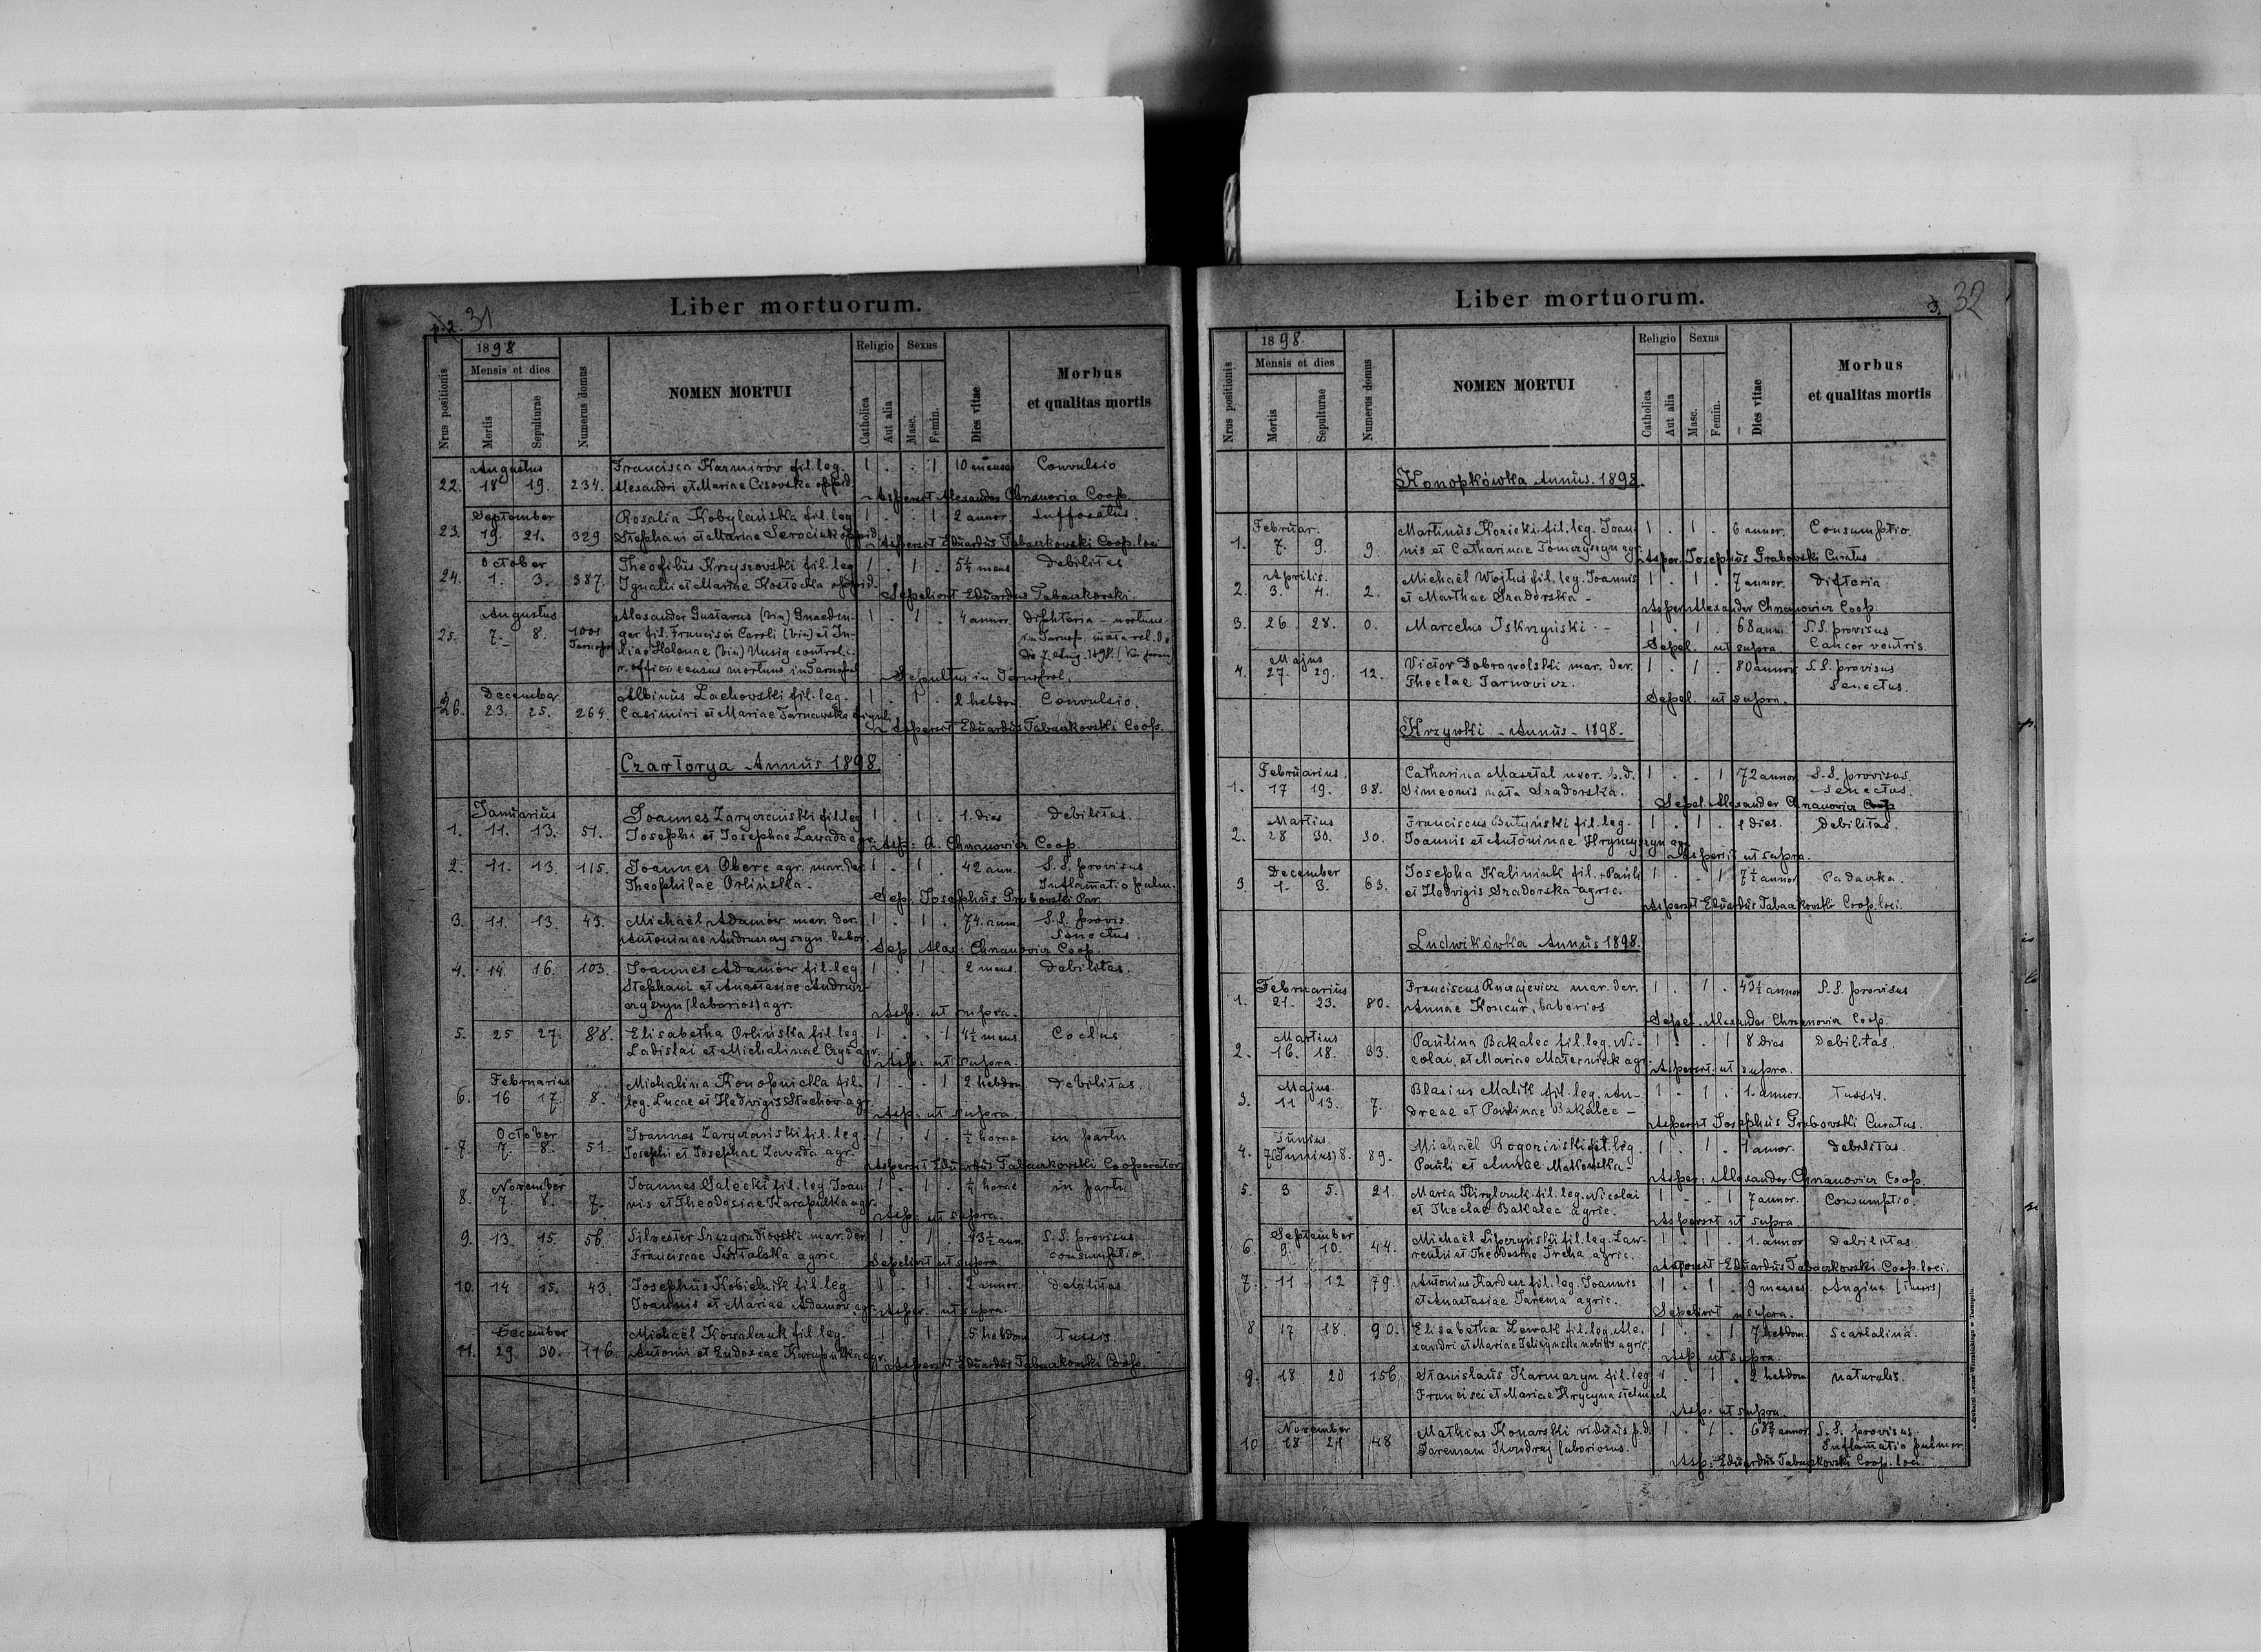 p. 2. 31
Liber mortuorum.
Nrus positionis
1898
Mensis et dies
Mortis
Sepulturae
Numerus domus
NOMEN MORTUI
Religio
Catholica
Aut alia
Sexus
Masc.
Femin.
Dies vitae
Morbus
et qualitas mortis
Augustus
22. 18 19. 234. Francisca Karmirów fil. leg. 1 . . 1 10 menses Convulsio
Alexandri et Mariae Cisovska oppid.
Aspersit Alexander Chranovicz Coop.
September
23. 19. 21. 329 Rosalia Kobylańska fil. leg. 1 . . 1 2 annor. Suffocatus.
Stephani et Mariae Serociuk oppid.
Aspersit Eduardus Tabaczkowski Coop. loci
October
24. 1. 3. 387. Theofilus Krzyszovski fil. leg. 1 . 1 . 5½ mens Debilitas
Ignatii et Mariae Kostecka oppid.
Sepelivit Eduardus Tabaczkowski.
Augustus
25. 7. 8. 1001 Tarnopol Alexander Gustavus (bin) Gnaedin- 1 . 1 . 4 annor. Diphteria – mortuus
ger fil. Francisci Caroli (bin) et Ju- in Tarnop.
liae Helenae (bin) Unsig control. c.
r. officii census mortuus in Tarnopol
Sepultus in Tarnopol.
December
26. 23. 25. 264. Albinus Lachovski fil. leg. 1 . 1 . 2 hebdom Convulsio.
Casimiri et Mariae Tarnawska figuli
Aspersit Eduardus Tabaczkovski Coop.
Czartorya Annus 1898
Januarius
1. 11. 13. 51. Joannes Zaryczański fil. leg 1 . 1 . 1. dies Debilitas.
Josephi et Josephae Zawada agr.
Asp: A. Chranovicz Coop.
2. 11. 13. 115. Joannes Oberc agr. mar. der. 1 . 1 . 42 ann. S.S. provisus
Theophilae Orlińska. Inflamatio pulm.
Sep. Josephus Grabovski Par.
3. 11. 13 43. Michaël Adamów mar. der. 1 . 1 . 74. ann. S.S. provis.
Antoninae Andruszczyszyn. labor. Senectus.
Sep. Alex: Chranovicz Coop.
4. 14. 16. 103. Joannes Adamów fil. leg. 1 . 1 . 2 mens. Debilitas.
Stephani et Anastasiae Andrusz-
czyszyn (laborios) agr.
Asp: ut supra.
5. 25 27. 88. Elisabetha Orlińska fil. leg 1 . . 1 4½ mens. Coclus
Ladislai et Michalinae Czyż agr.
Asp: ut supra.
Februarius
6. 16 17. 8. Michalina Konopnicka fil. 1 . . 1 2 hebdom Debilitas.
leg. Lucae et Hedvigis Stachów agr.
Asp: ut supra
October
7. 7. 8. 51. Joannes Zaryczański fil. leg. 1 . 1 . ½ horae in partu
Josephi et Josephae Zawada agr.
Aspersit Eduardus Tabaczkovski Cooperator
November
8. 7. 8. 7. Joannes Salecki fil. leg. Joan- 1 . 1 . ½ horae in partu
nis et Theodosiae Karapulka agr.
Asp: ut supra.
9. 13. 15. 56. Silvester Szczyradłovski mar. der 1 . 1 . 43½ ann. S.S. provisus
Franciscae agric. consumptio.
Sepelivit ut supra
10. 14 15. 43. Josephus Kobielnik fil. leg 1 . 1 . 2 annor. Debilitas
Joannis et Mariae Adamów agr.
Asper. ut supra.
December
11. 29. 30. 116. Michaël Kowalczuk fil. leg. 1 . 1 . 5 hebdom Tussis
Antonii et Eudosiae Karapulka agr.
Aspersit Eduardus Tabaczkovski Coop.
3. 32
Liber mortuorum.
Nrus positionis
1898.
Mensis et dies
Mortis
Sepulturae
Numerus domus
NOMEN MORTUI
Religio
Catholica
Aut alia
Sexus
Masc.
Femin.
Dies vitae
Morbus
et qualitas mortis
Konopkówka Annus. 1898.
Februar.
1. 7. 9. 9. Martinus Koricki. fil. leg. Joan- 1 . 1 . 6 annor. Consumptio.
nis et Catharinae Tomczyszyn agr.
Asper. Josephus Grabowski Curatus.
Aprilis.
2. 3. 4. 2. Michaël Wojtus fil. leg. Joannis 1 . 1 . 7 annor. Difteria
et Marthae Sradorska –
Asper. Alexander Chranovicz Coop.
3. 26 28. 0. Marcelus Iskrzyński – 1 . 1 . 68 ann. S.S. provisus
Cancer ventris.
Sepel. ut supra.
Majus
4. 27. 29. 12. Victor Dobrowolski mar. der. 1 . 1 . 80 annor. S.S. provisus
Theclae Tarnovicz. Senectus.
Sepel. ut supra.
Krzywki – Annus – 1898.
Februarius.
1. 17 19. 38. Catharina Masztal uxor. p.d. 1 . . 1 72 annor S.S. provisus.
Simeonis nata Sradorska. Senectus.
Sepel. Alexander Chranovicz Coop
Martius
2. 28 30. 30. Franciscus Butyński fil. leg. 1 . 1 . 1 dies. Debilitas.
Joannis et Antoninae Hryncyszyn agr.
Aspersit ut supra.
December
3. 1. 3. 63. Josepha Kaliniuk fil. Pauli 1 . . 1 7½ annor Padaczka.
et Hedvigis Sradorska agric.
Aspersit Eduardus Tabaczkowski Coop. loci.
Ludwikówka Annus 1898.
Februarius
1. 21. 23. 80. Franciscus mar. der. 1 . 1 . 43½ annor S.S. provisus
Annae Koncur, laborios
Sepel. Alexander Chranovicz Coop.
Martius
2. 16. 18. 33. Paulina Bakalec fil. leg. Ni- 1 . . 1 8 dies Debilitas.
colai. et Mariae Materniak agr.
Aspersit. ut supra.
Majus.
3. 11 13. 7. Blasius Malik fil. leg. An- 1 . 1 . 1. annor. Tussis.
dreae et Paulinae Bakalec –
Aspersit Josephus Grabovski Curatus.
Junius.
4. 7 (Junius) 8. 89. Michaël Rogoziński fil. leg. 1 . 1 . 1 annor. Debilitas.
Pauli et Annae Matkowska –
Asper: Alexander Chranovicz Coop.
5. 3 5. 21. Maria fil. leg. Nicolai 1 . . 1 7 annor. Consumptio.
et Theclae Bakalec agric.
Aspersit ut supra.
September
6. 9. 10. 44. Michaël Liperzyński fil. leg. Law- 1 . 1 . 1. annor Debilitas
rentii et Theodosiae Ircha agric.
Aspersit Eduardus Tabaczkowski Coop. loci.
7. 11 12 79. Antonius Kardesz fil. leg. Joannis 1 . 1 . 9 menses. Angina (tussis)
et Anastasiae Jarema agric.
Sepelivit ut supra.
8 17 18. 90. Elisabetha Lewak fil. leg. Ale- 1 . . 1 7 hebdom. Scarlatina.
xandri et Mariae nobilis agric.
Asp: ut supra.
9. 18 20 156. Stanislaus Karmazyn fil. leg 1 . 1 . 2 hebdom naturalis.
Francisci et Mariae Hrycyna stelmach
Asp: ut supra.
November
10 18 21 48 Mathias Konarski viduus p.d. 1 . 1 . 68½ annor S.S. provisus.
Jaremam Kondraj laboriosus. Inflamatio pulmor.
Asp: Eduardus Tabaczkovski Coop. loci.